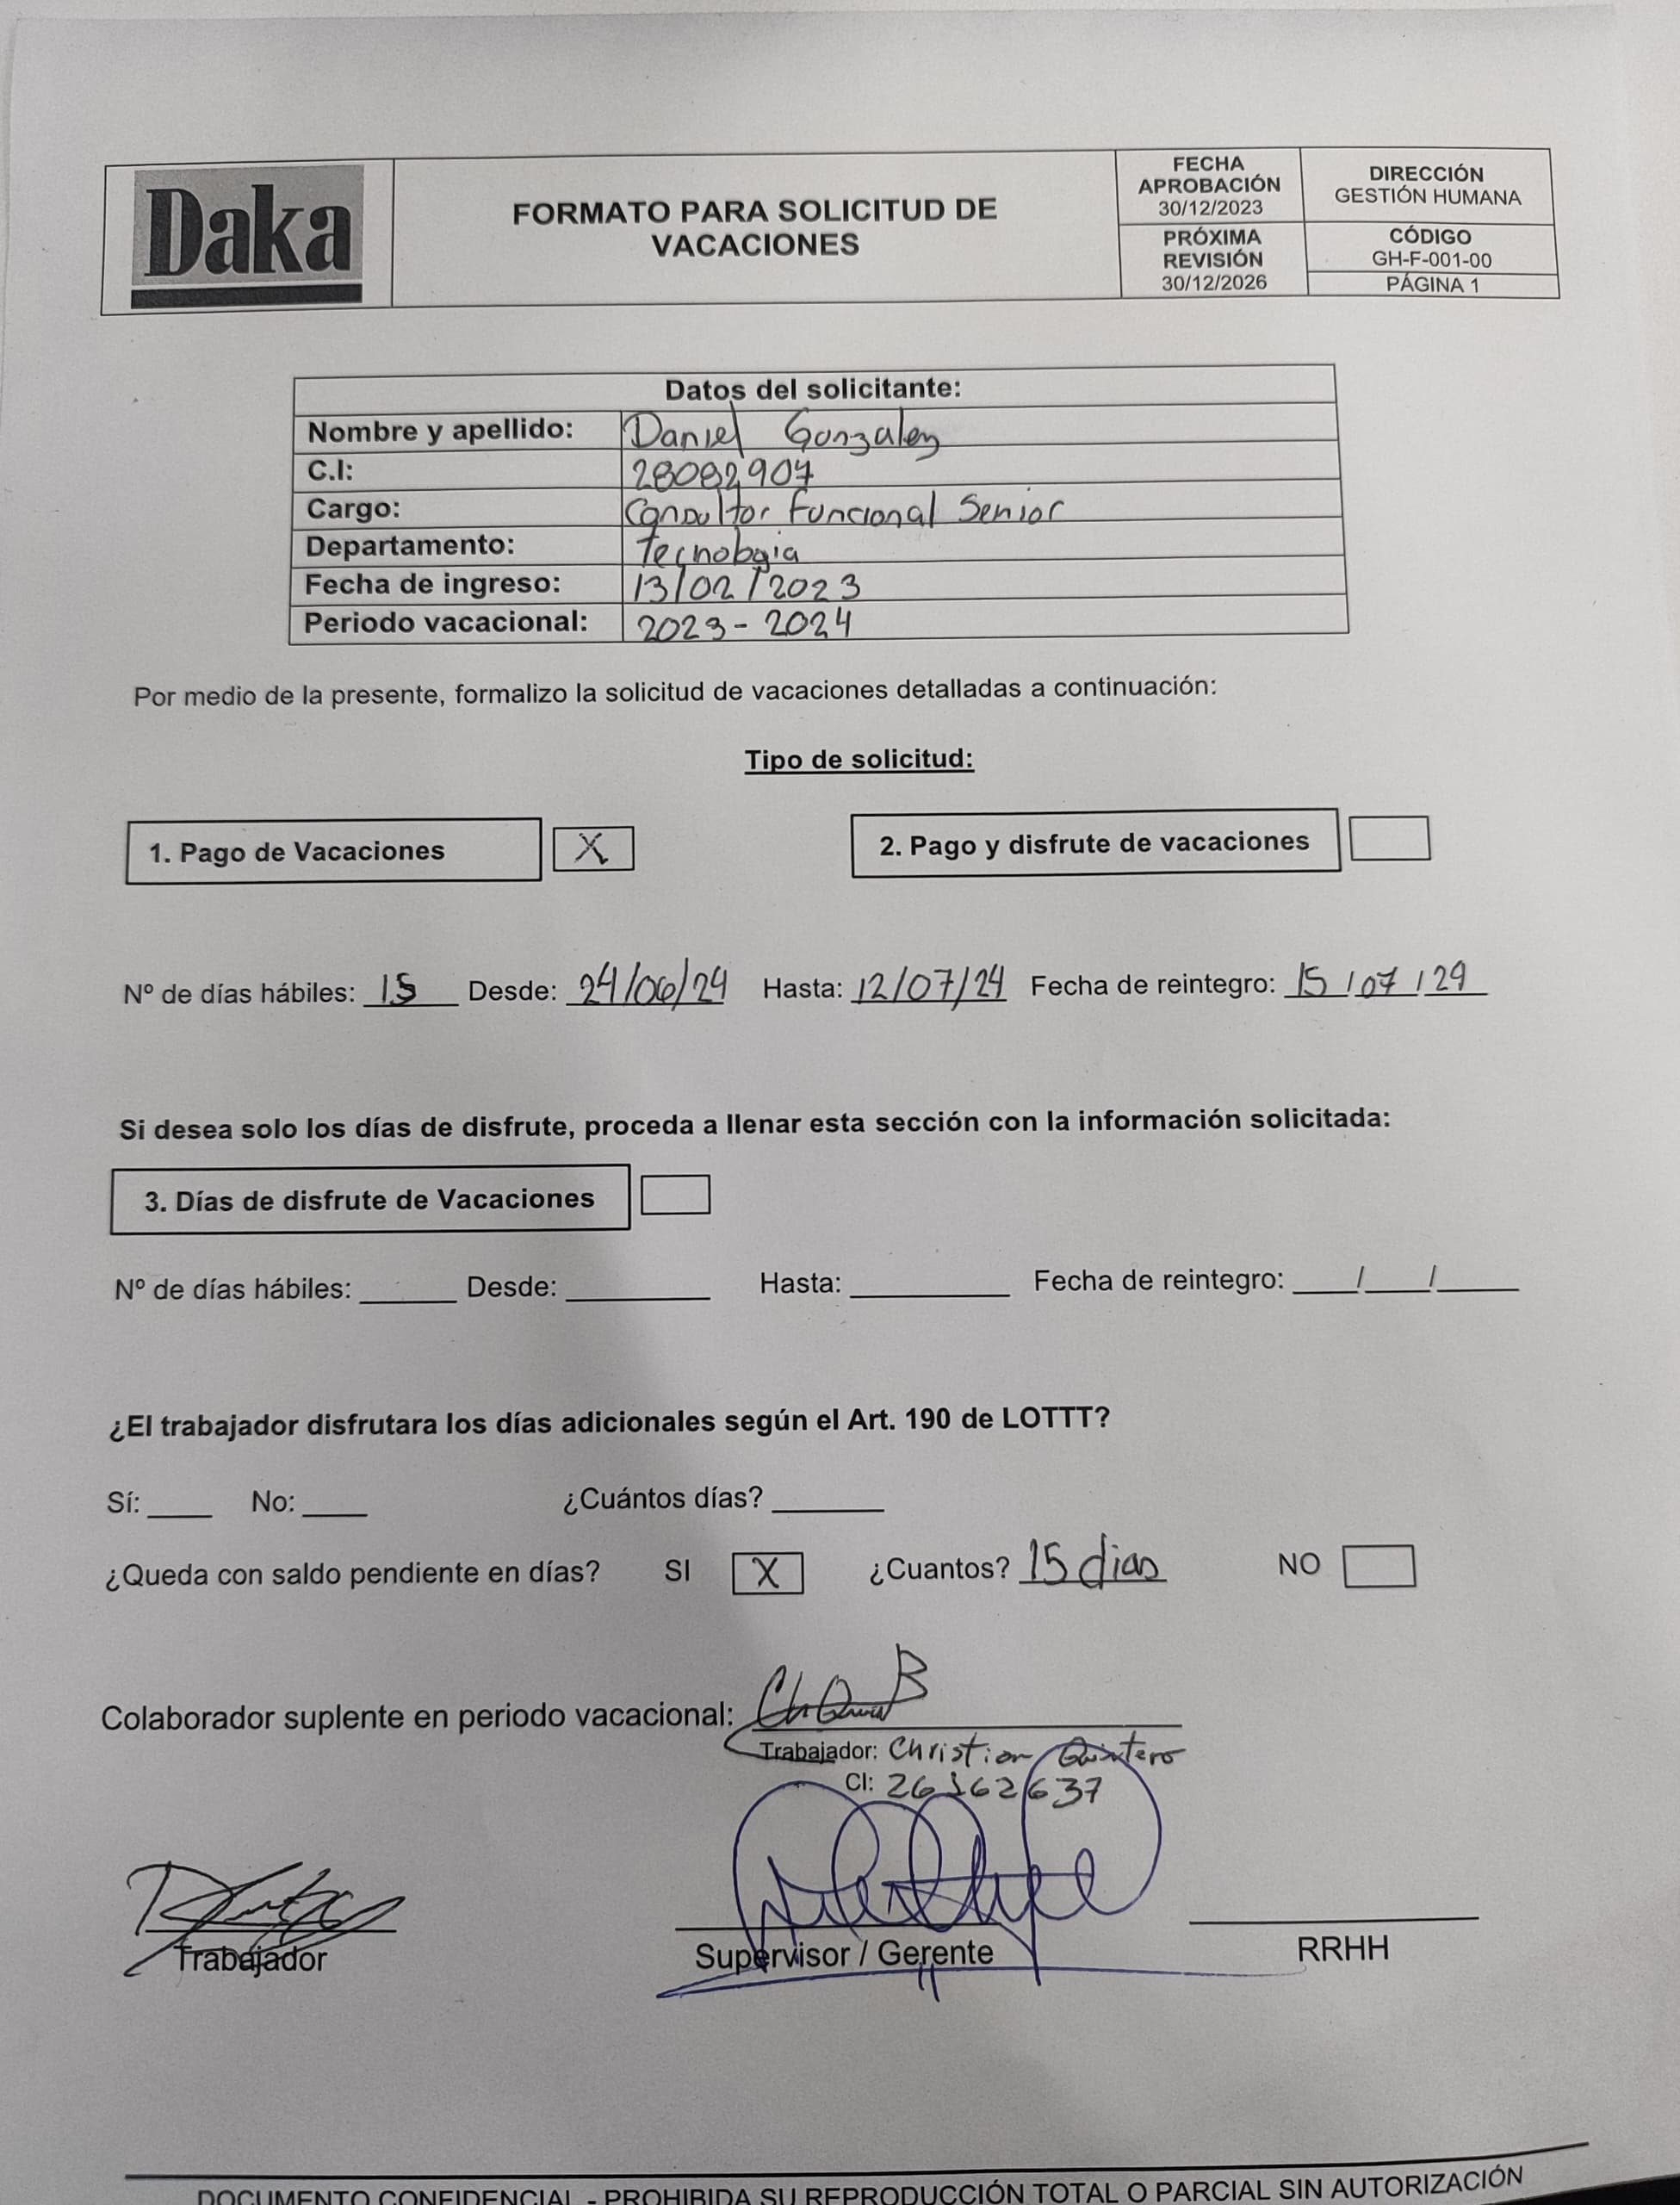 Daka
FORMATO PARA SOLICITUD DE
VACACIONES
FECHA
APROBACIÓN
30/12/2023
PRÓXIMA
REVISIÓN
30/12/2026
DIRECCIÓN
GESTIÓN HUMANA
CÓDIGO
GH-F-001-00
PÁGINA 1
Datos del solicitante:
Nombre y apellido: Daniel Gonzalez
C.I: 28082907
Cargo: Consultor Funcional Senior
Departamento: Tecnologia
Fecha de ingreso: 13/02/2023
Periodo vacacional: 2023-2024
Por medio de la presente, formalizo la solicitud de vacaciones detalladas a continuación:
Tipo de solicitud:
1. Pago de Vacaciones X 2. Pago y disfrute de vacaciones
Nº de días hábiles: 15 Desde: 24/06/24 Hasta: 12/07/24 Fecha de reintegro: 15/07/24
Si desea solo los días de disfrute, proceda a llenar esta sección con la información solicitada:
3. Días de disfrute de Vacaciones
Nº de días hábiles: ______ Desde: ______ Hasta: ______ Fecha de reintegro: ___/___/___
¿El trabajador disfrutara los días adicionales según el Art. 190 de LOTTT?
Sí: ____ No: ____ ¿Cuántos días? ______
¿Queda con saldo pendiente en días? SI X ¿Cuantos? 15 dias NO
Colaborador suplente en periodo vacacional:
Trabajador: Christian Quintero
CI: 26162637
Trabajador Supervisor / Gerente RRHH
DOCUMENTO CONFIDENCIAL - PROHIBIDA SU REPRODUCCIÓN TOTAL O PARCIAL SIN AUTORIZACIÓN